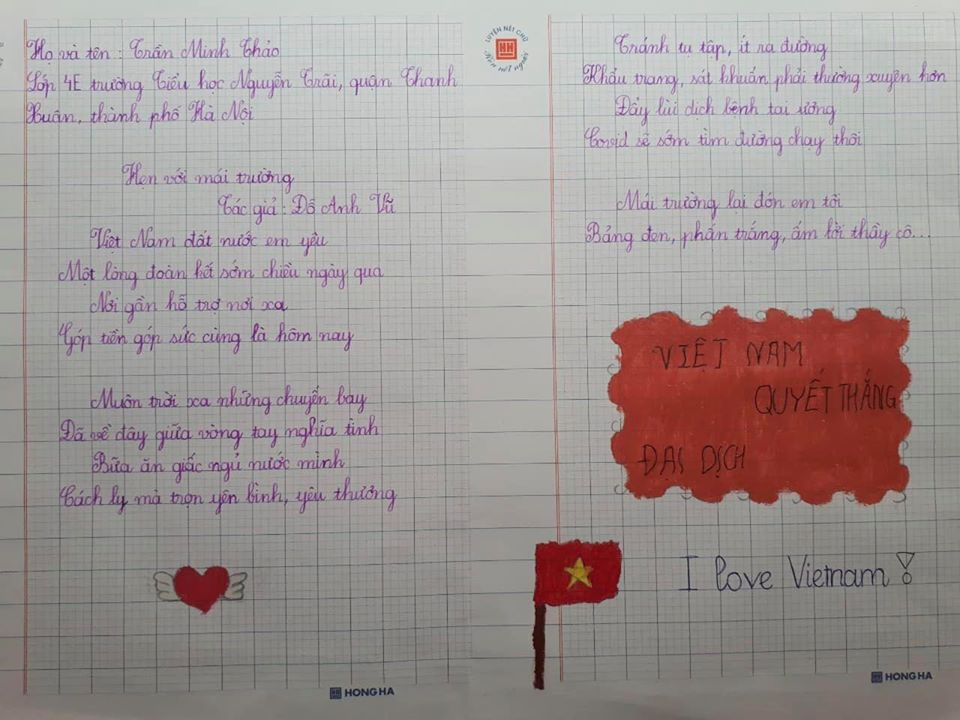 Họ và tên : Trần Minh Thảo
Lớp 4E trường Tiểu học Nguyễn Trãi, quận Thanh
Xuân, thành phố Hà Nội
Hẹn với mái trường
Tác giả : Đỗ Anh Vũ
Việt Nam đất nước em yêu
Một lòng đoàn kết sớm chiều ngày qua
Nơi gần hỗ trợ nơi xa
Góp tiền góp sức cùng là hôm nay
Muôn trời xa những chuyến bay
Đã về đây giữa vòng tay nghĩa tình
Bữa ăn giấc ngủ nước mình
Cách ly mà trọn yên bình, yêu thương
HONG HA
LUYỆN NÉT CHỮ
RÈN NẾT NGƯỜI
Tránh tụ tập, ít ra đường
Khẩu trang, sát khuẩn phải thường xuyên hơn
Đẩy lùi dịch bệnh tai ương
Covid sẽ sớm tìm đường chạy thôi
Mái trường lại đón em tới
Bảng đen, phấn trắng, ấm lời thầy cô...
VIỆT NAM
QUYẾT THẮNG
ĐẠI DỊCH
I love Vietnam !
HONG HA